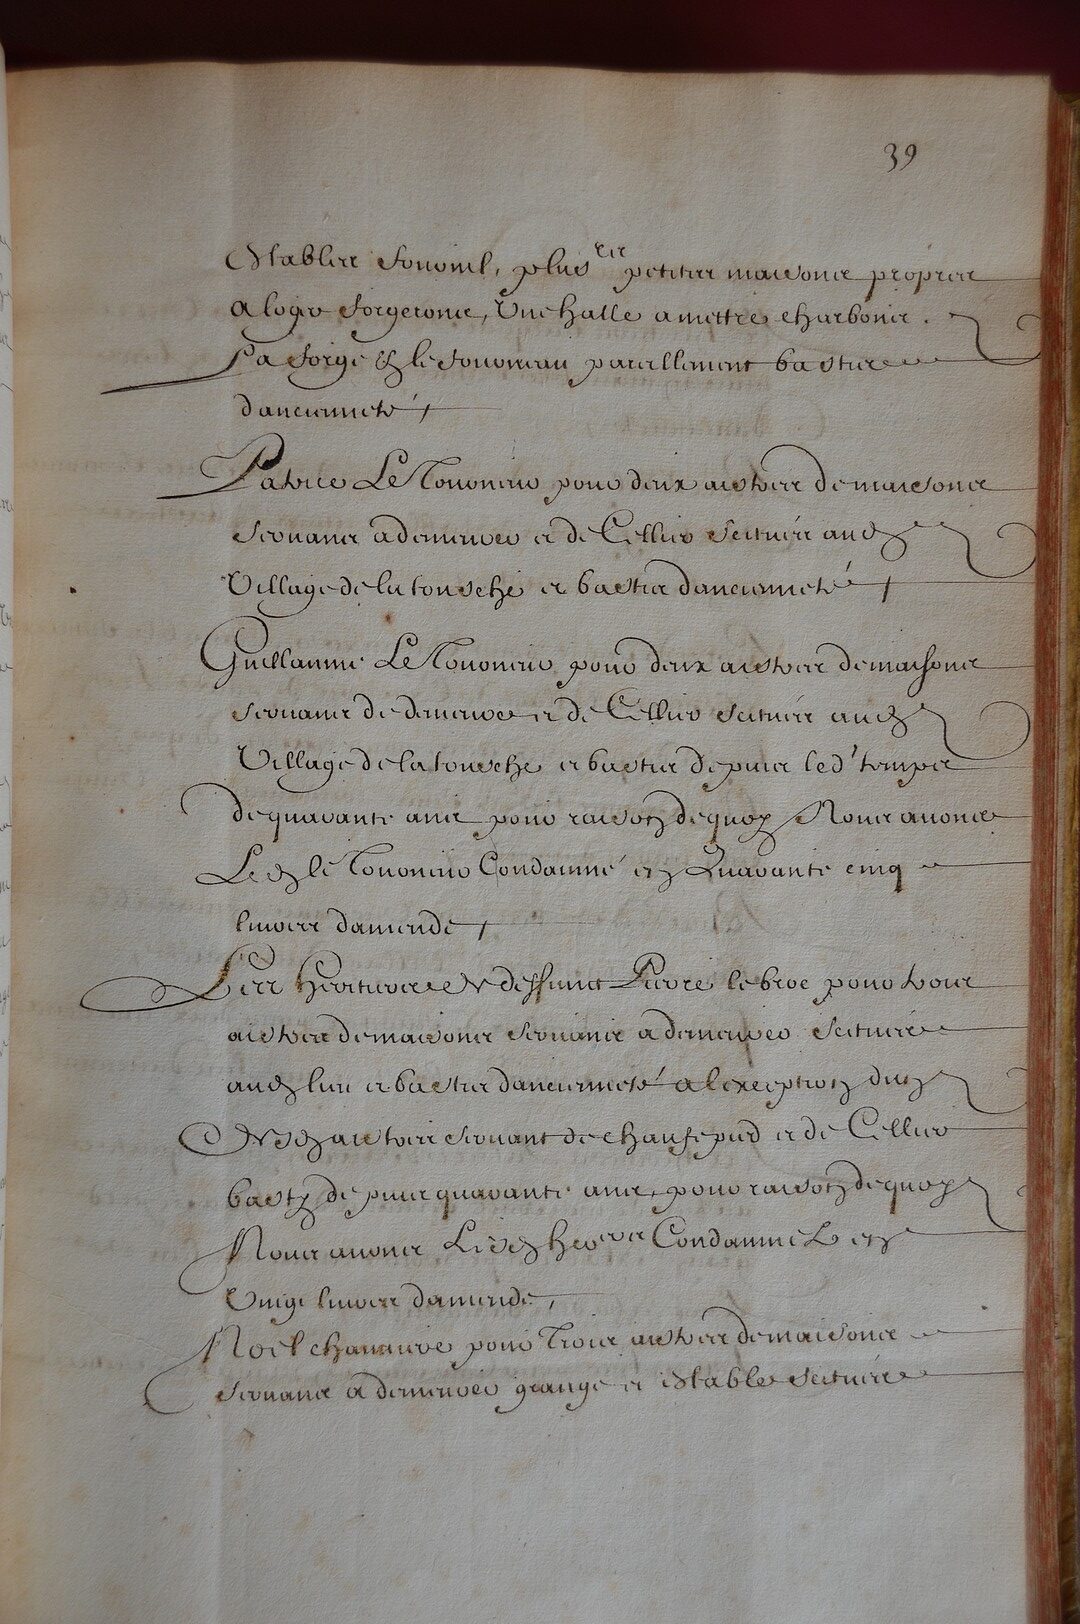 39
Establies fournil, plus^rs petites maisons propres
a loger forgerons, Une halle a mettre charbons.
La forge & le fourneau pareillement basties
dancienneté,
Patrice Le Tourneux pour deux aistres de maisons
servans a demeurer et de Cellier scituées aud
Village de la tousche et basties dancienneté,
Guillaume Le Tourneux pour deux aistres de maisons
servans de demeure et de Cellier scituées aud
Village de la tousche et basties depuis led' temps
de quarante ans pour raison de quoy Nous avons
Led le Tourneux Condamné en Quarante cinq
livres damende,
Les Heritiers de deffunct Pierre le broc pour trois
aistres de maisons servans a demeurer scituées
aud lieu et basties dancienneté a lexception dun
Desd aistres servant de chaufepied et de Cellier
basty depuis quarante ans, pour raison de quoy
Nous avons Lesd her^ers Condamnés en
Vingt livres damende,
Noel chauvire pour Trois aistres de maisons
servans a demeurer grange et estable scituées